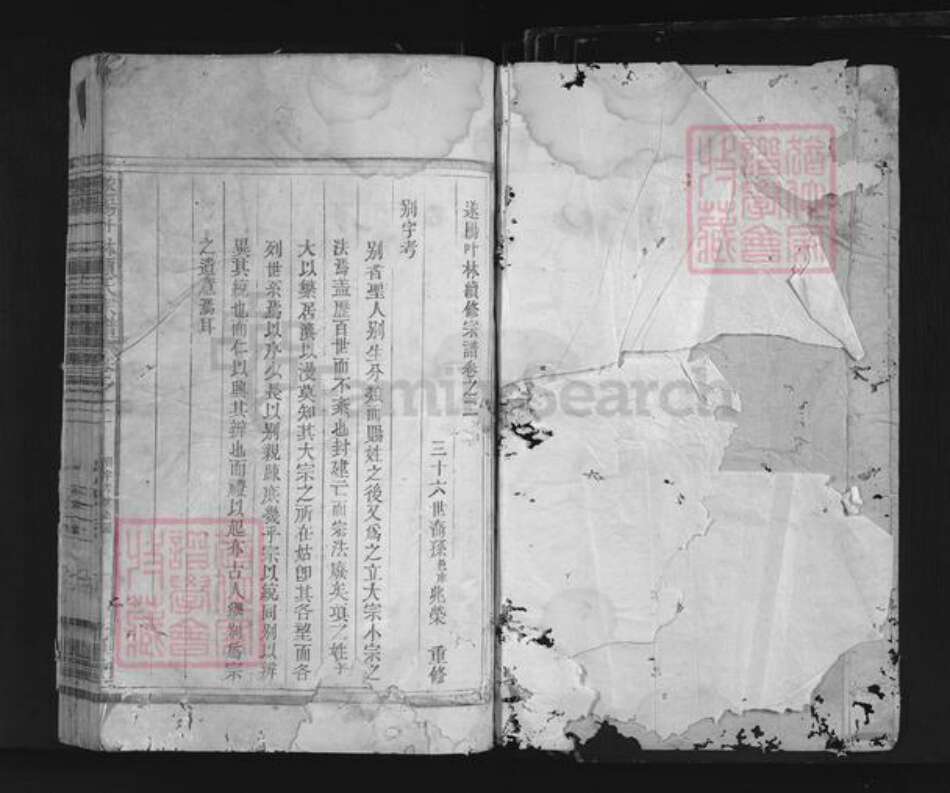 遂陽叶林續修宗譜卷之二
三十六世裔孫邑庠兆榮 重修
別字考
別者聖人別生分類而賜姓之後又為之立大宗小宗之
法焉盖歷百世而不紊也封建亡而宗法廢矣項之姓
大以樂居濮以漫莫知其大宗之所在姑即其各望而各
列世系焉以序少長以別親疎庶幾乎宗以統同別以辨
異其統也而仁以興其辨也而禮以起亦古人繼別為宗
之遺意焉耳
FamilySearch